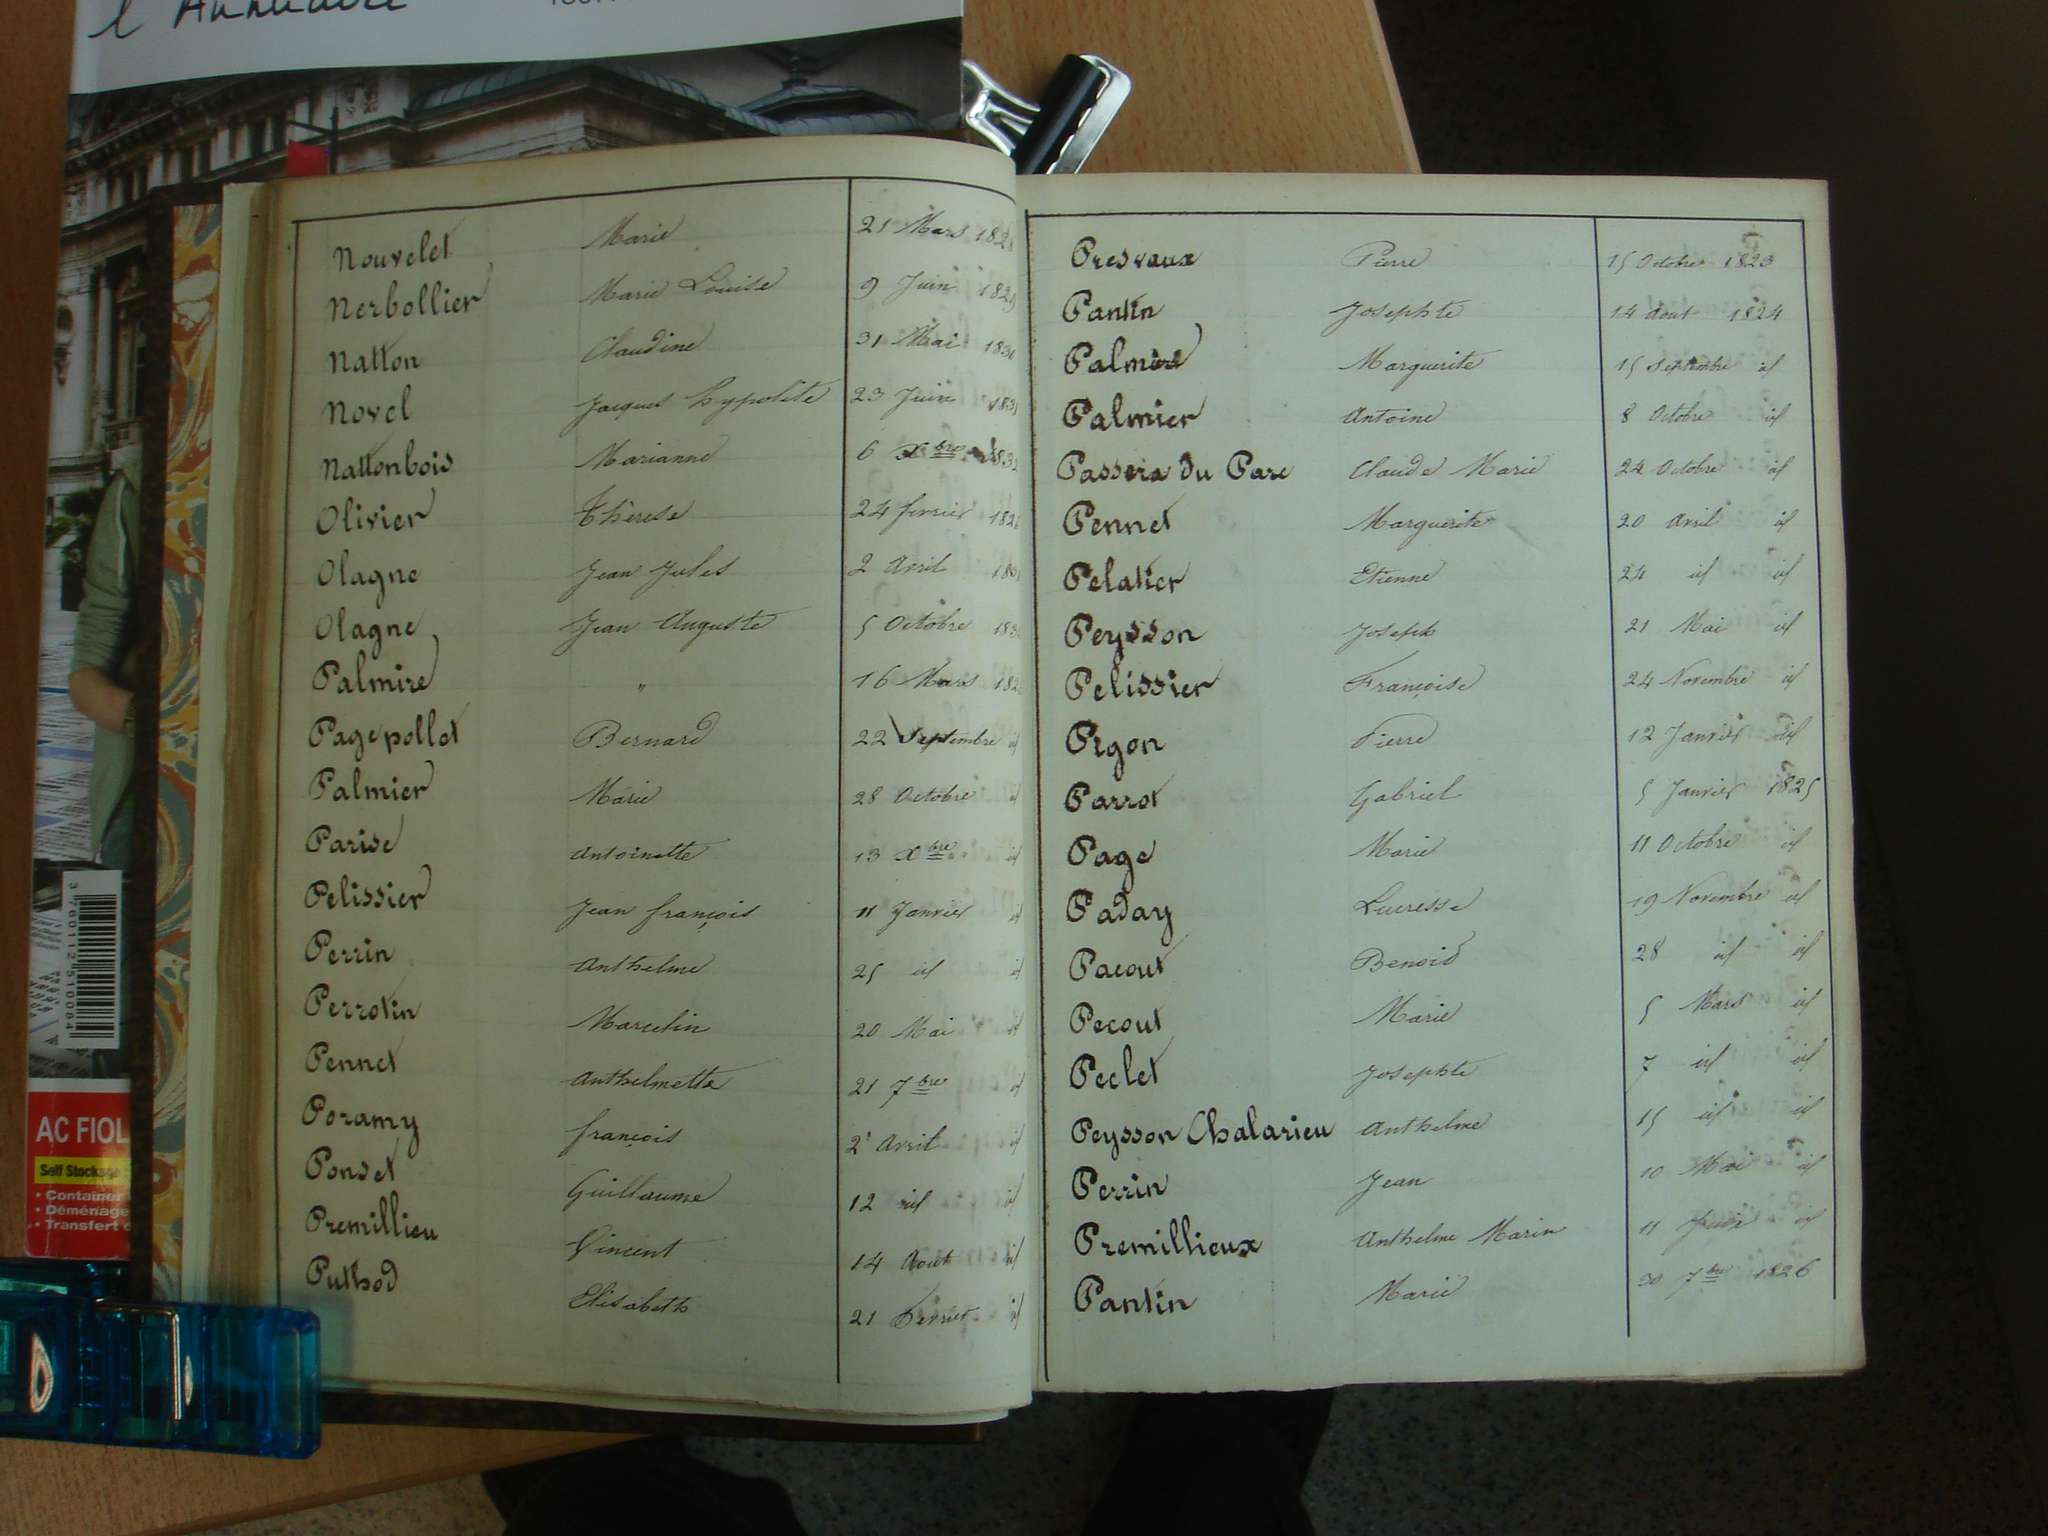 l'Annuaire
Nouvelet Marie 21 Mars 182
Nerbollier Marie Louise 9 Juin 1829
Natton Claudine 31 Mai 183
Novel Jacques hypolite 23 Juin 183
Nattonbois Marianne 6 Xbre 183
Olivier Thérèse 24 fevrier 182
Olagne Jean Jules 2 Avril 183
Olagne Jean Auguste 5 Octobre 183
Palmire " 16 Mars 182
Pagepollet Bernard 22 Septembre id
Palmier Marie 28 Octobre id
Parise antoinette 13 Xbre id
Pelissier Jean françois 11 Janvier id
Perrin anthelme 25 id id
Perrotin Marcelin 20 Mai id
Pennet anthelmette 21 7bre id
Poramy françois 2 Avril id
Ponset Guillaume 12 id id
Premillieu Vincent 14 Aout id
Puthod Elisabeth 21 Fevrier id
Presvaux Pierre 15 Octobre 1823
Pantin Josephte 14 Aout 1824
Palmire Marguerite 15 Septembre id
Palmier Antoine 8 Octobre id
Passera du Parc Claude Marie 24 Octobre id
Pennet Marguerite 20 Avril id
Pelatier Etienne 24 id id
Peysson Joseph 21 Mai id
Pelissier Françoise 24 Novembre id
Pigon Pierre 12 Janvier id
Parrot Gabriel 5 Janvier 1825
Page Marie 11 Octobre id
Paday Lucresse 19 Novembre id
Pacout Benoid 28 id id
Pecout Marie 5 Mars id
Peclet Josephte 7 id id
Peysson Chalarieu Anthelme 15 id id
Perrin Jean 10 Mai id
Premillieux Anthelme Marin 11 Juin id
Pantin Marie 30 7bre 1826
3 760112 510084
AC FIOL
Self Stockage
• Container
• Déménage
• Transfert d